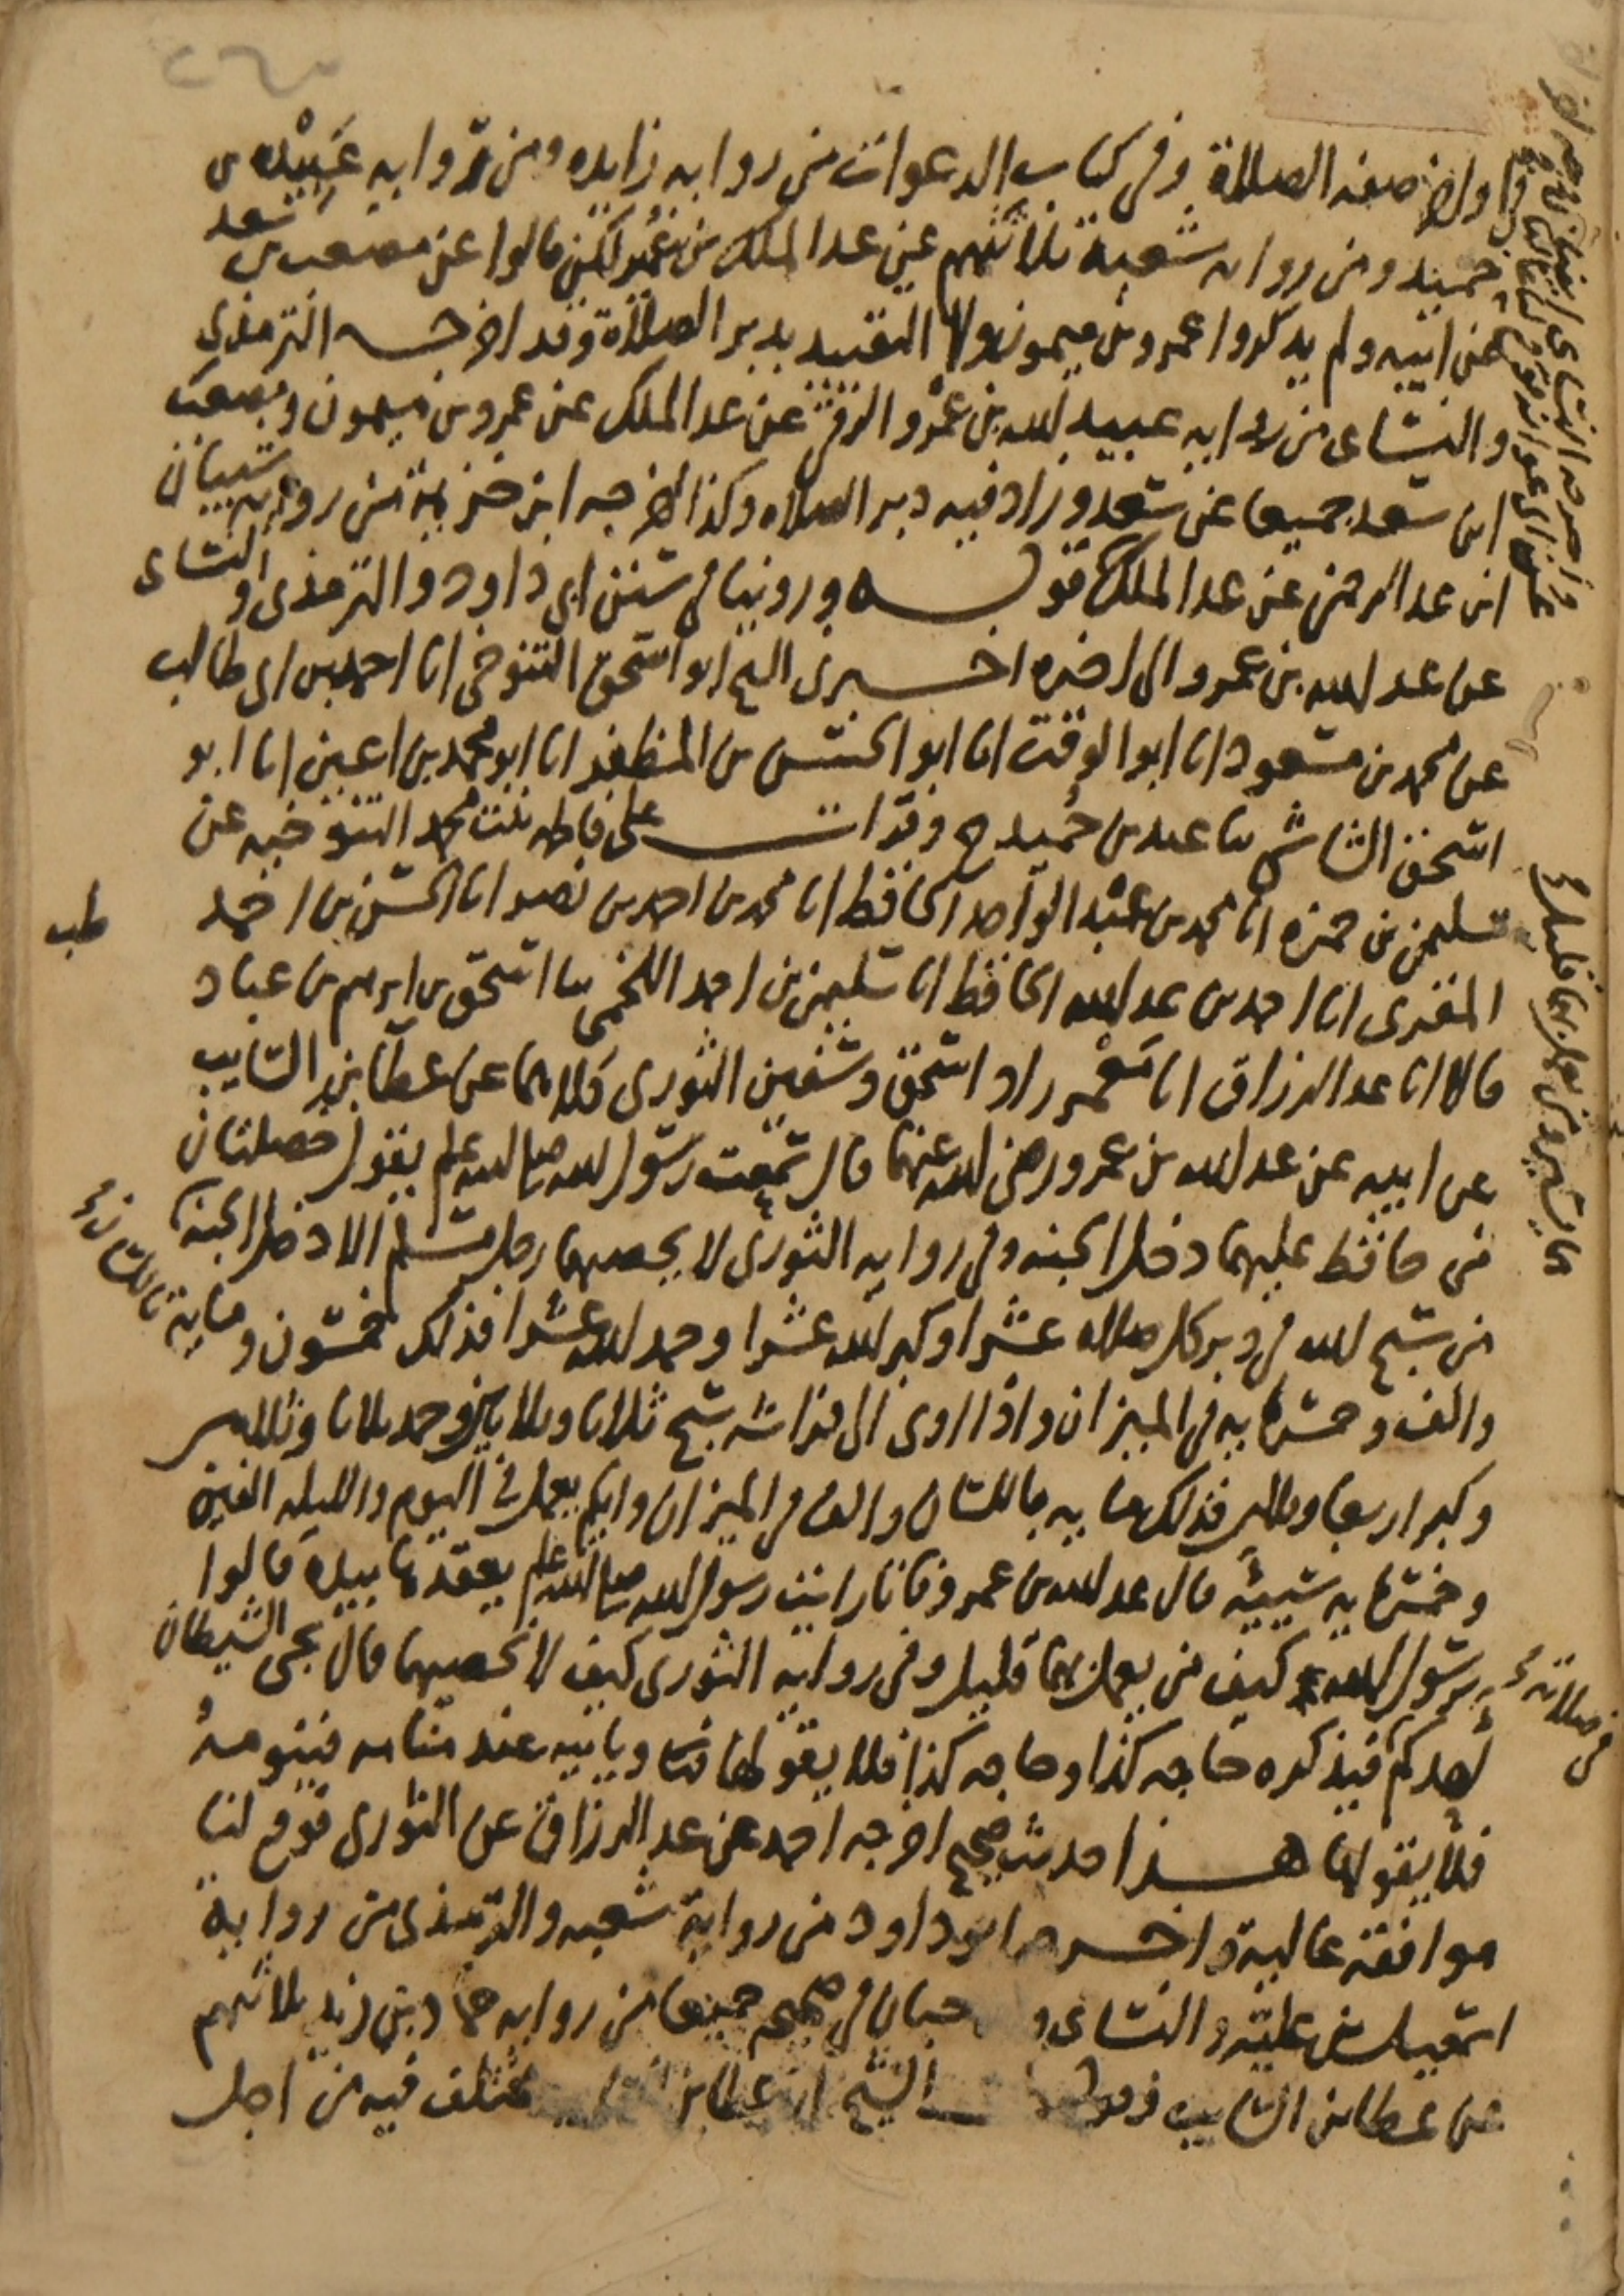 في اواخر صفة الصلاة وفي كتاب الدعوات من رواية زايده ومن رواية عَبِيْده بن
حميد ومن رواية شعبة ثلاثتهم عن عبد الملك بن عُمَير لكن قالوا عن مصعب بن سعد
عن ابيه ولم يذكروا عمرو بن ميمون ولا التقييد بدبر الصلاة وقد اخرجه الترمذي
والنساي من رواية عبيد الله بن عمرو الرقي عن عبد الملك عن عمرو بن ميمون ومصعب
ابن سعد جميعا عن سعد وزاد فيه دبر الصلاه وكذا اخرجه ابن خزيمة من رواية شيبان
ابن عبد الرحمن عن عبد الملك قوله وروينا في سنن ابي داود والترمذي والنساي
عن عبد الله بن عمرو الى اخره اخبرني الشيخ ابو اسحق التنوخي انا احمد بن ابي طالب
عن محمد بن مسعود انا ابو الوقت انا ابو الحسن بن المظفر انا ابو محمد بن اعين انا ابو
اسحق الشاشي ثنا عبد بن حُميد ح وقرات على فاطمه بنت محمد التنوخيه عن
سليمن بن حمزه انا محمد بن عبْد الواحد الحافظ انا محمد بن احمد بن نصر انا الحسن بن احمد
المقري انا احمد بن عبد الله الحافظ انا سليمن بن احمد اللخمي ثنا اسحق بن ابرهيم بن عباد
قالا انا عبد الرزاق انا مَعْمر زاد اسحق وسفين الثوري كلاهما عن عطا بن السايب
عن ابيه عن عبد الله بن عمرو رضي الله عنهما قال سمعت رسول الله صلى الله عليه وسلم يقول خصلتان
من حافظ عليهما دخل الجنه وفي رواية الثوري لا يحصيهما رجل مسلم الا دخل الجنة
من سبح الله في دبر كل صلاه عشرا وكبر الله عشرا وحمد الله عشرا فذلك خمسون و
والف وخمسمايه في الميزان واذا اوى الى فراشه سبح ثلاثا وثلاثين وحمد ثلاثا وثلاثين
وكبر اربعا وثلاثين فذلك مايه باللسان والف في الميزان وايكم يعمل في اليوم والليله الفين
وخمسمايه سيئه قال عبد الله بن عمرو فانا رايت رسول الله صلى الله عليه وسلم يعقدها بيده قالوا
يرسول الله كيف من يعمل بهما قليل وفي رواية الثوري كيف لا نحصيهما قال يجي الشيطان
احدكم فيذكره حاجه كذا وحاجه كذا فلا يقولها وياتيه عند منامه فينومهُ
فلا يقولها هذا حديث صحيح اخرجه احمد عن عبد الرزاق عن الثوري فوقع لنا
موافقة عالية واخرجه ابو داود من رواية شعبه والترمذي من رواية
اسمعيل بن علية والنساي و حبان في صحيحه جميعا من رواية حماد بن زيد ثلاثتهم
عن عطا بن السايب الشيخ ان عطا بن مختلف فيه من اجل
طب
ماية باللسان
في صلاته